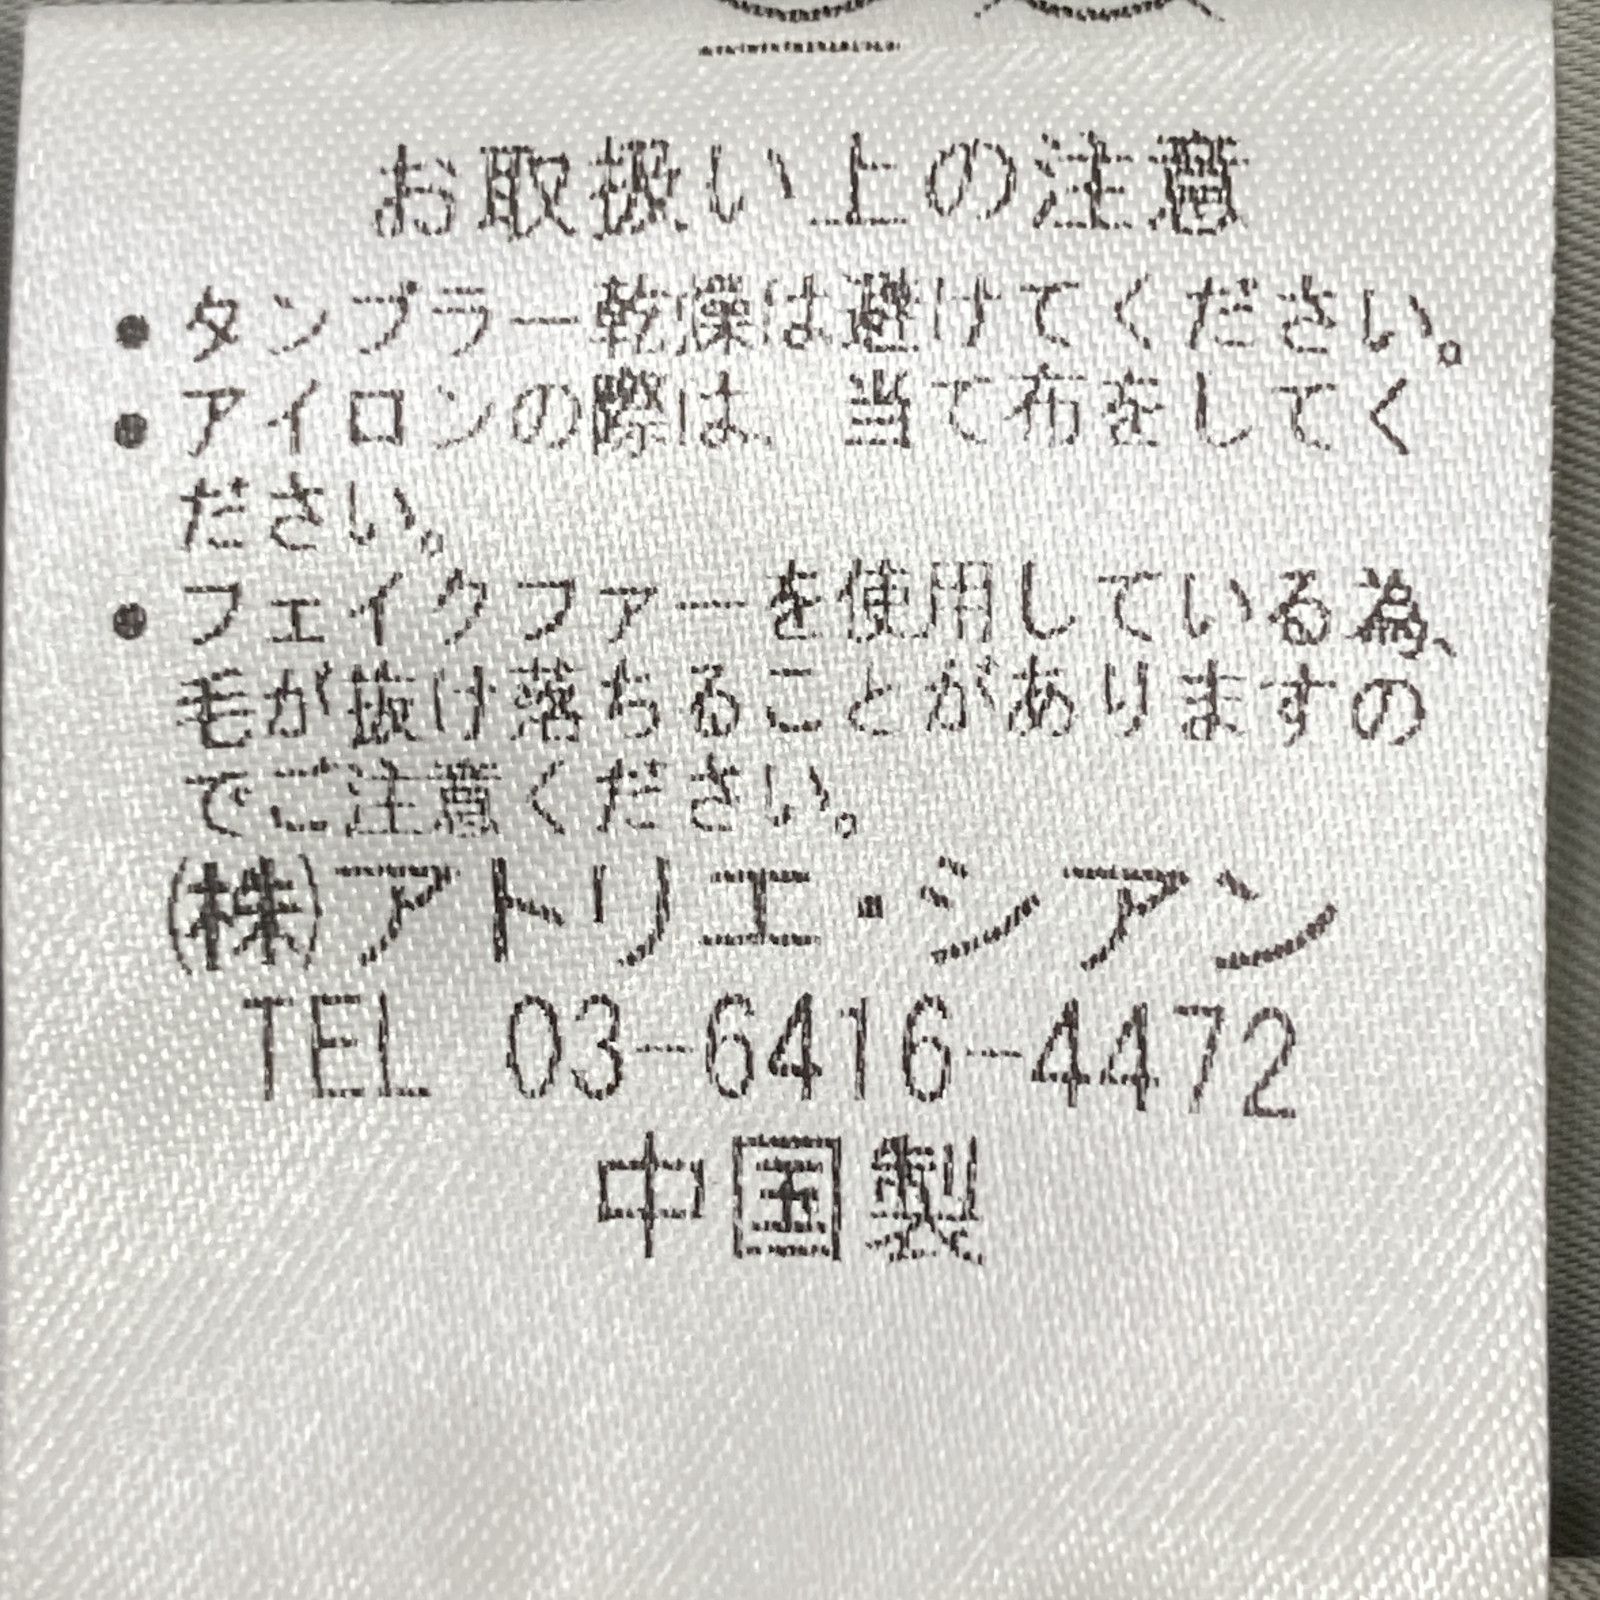 お取扱い上の注意
● タンブラー乾燥は避けてください。
● アイロンの際は、当て布をしてく
ださい。
● フェイクファーを使用している為、
毛が抜け落ちることがありますの
でご注意ください。
(株)アトリエ・シアン
TEL 03-6416-4472
中国製